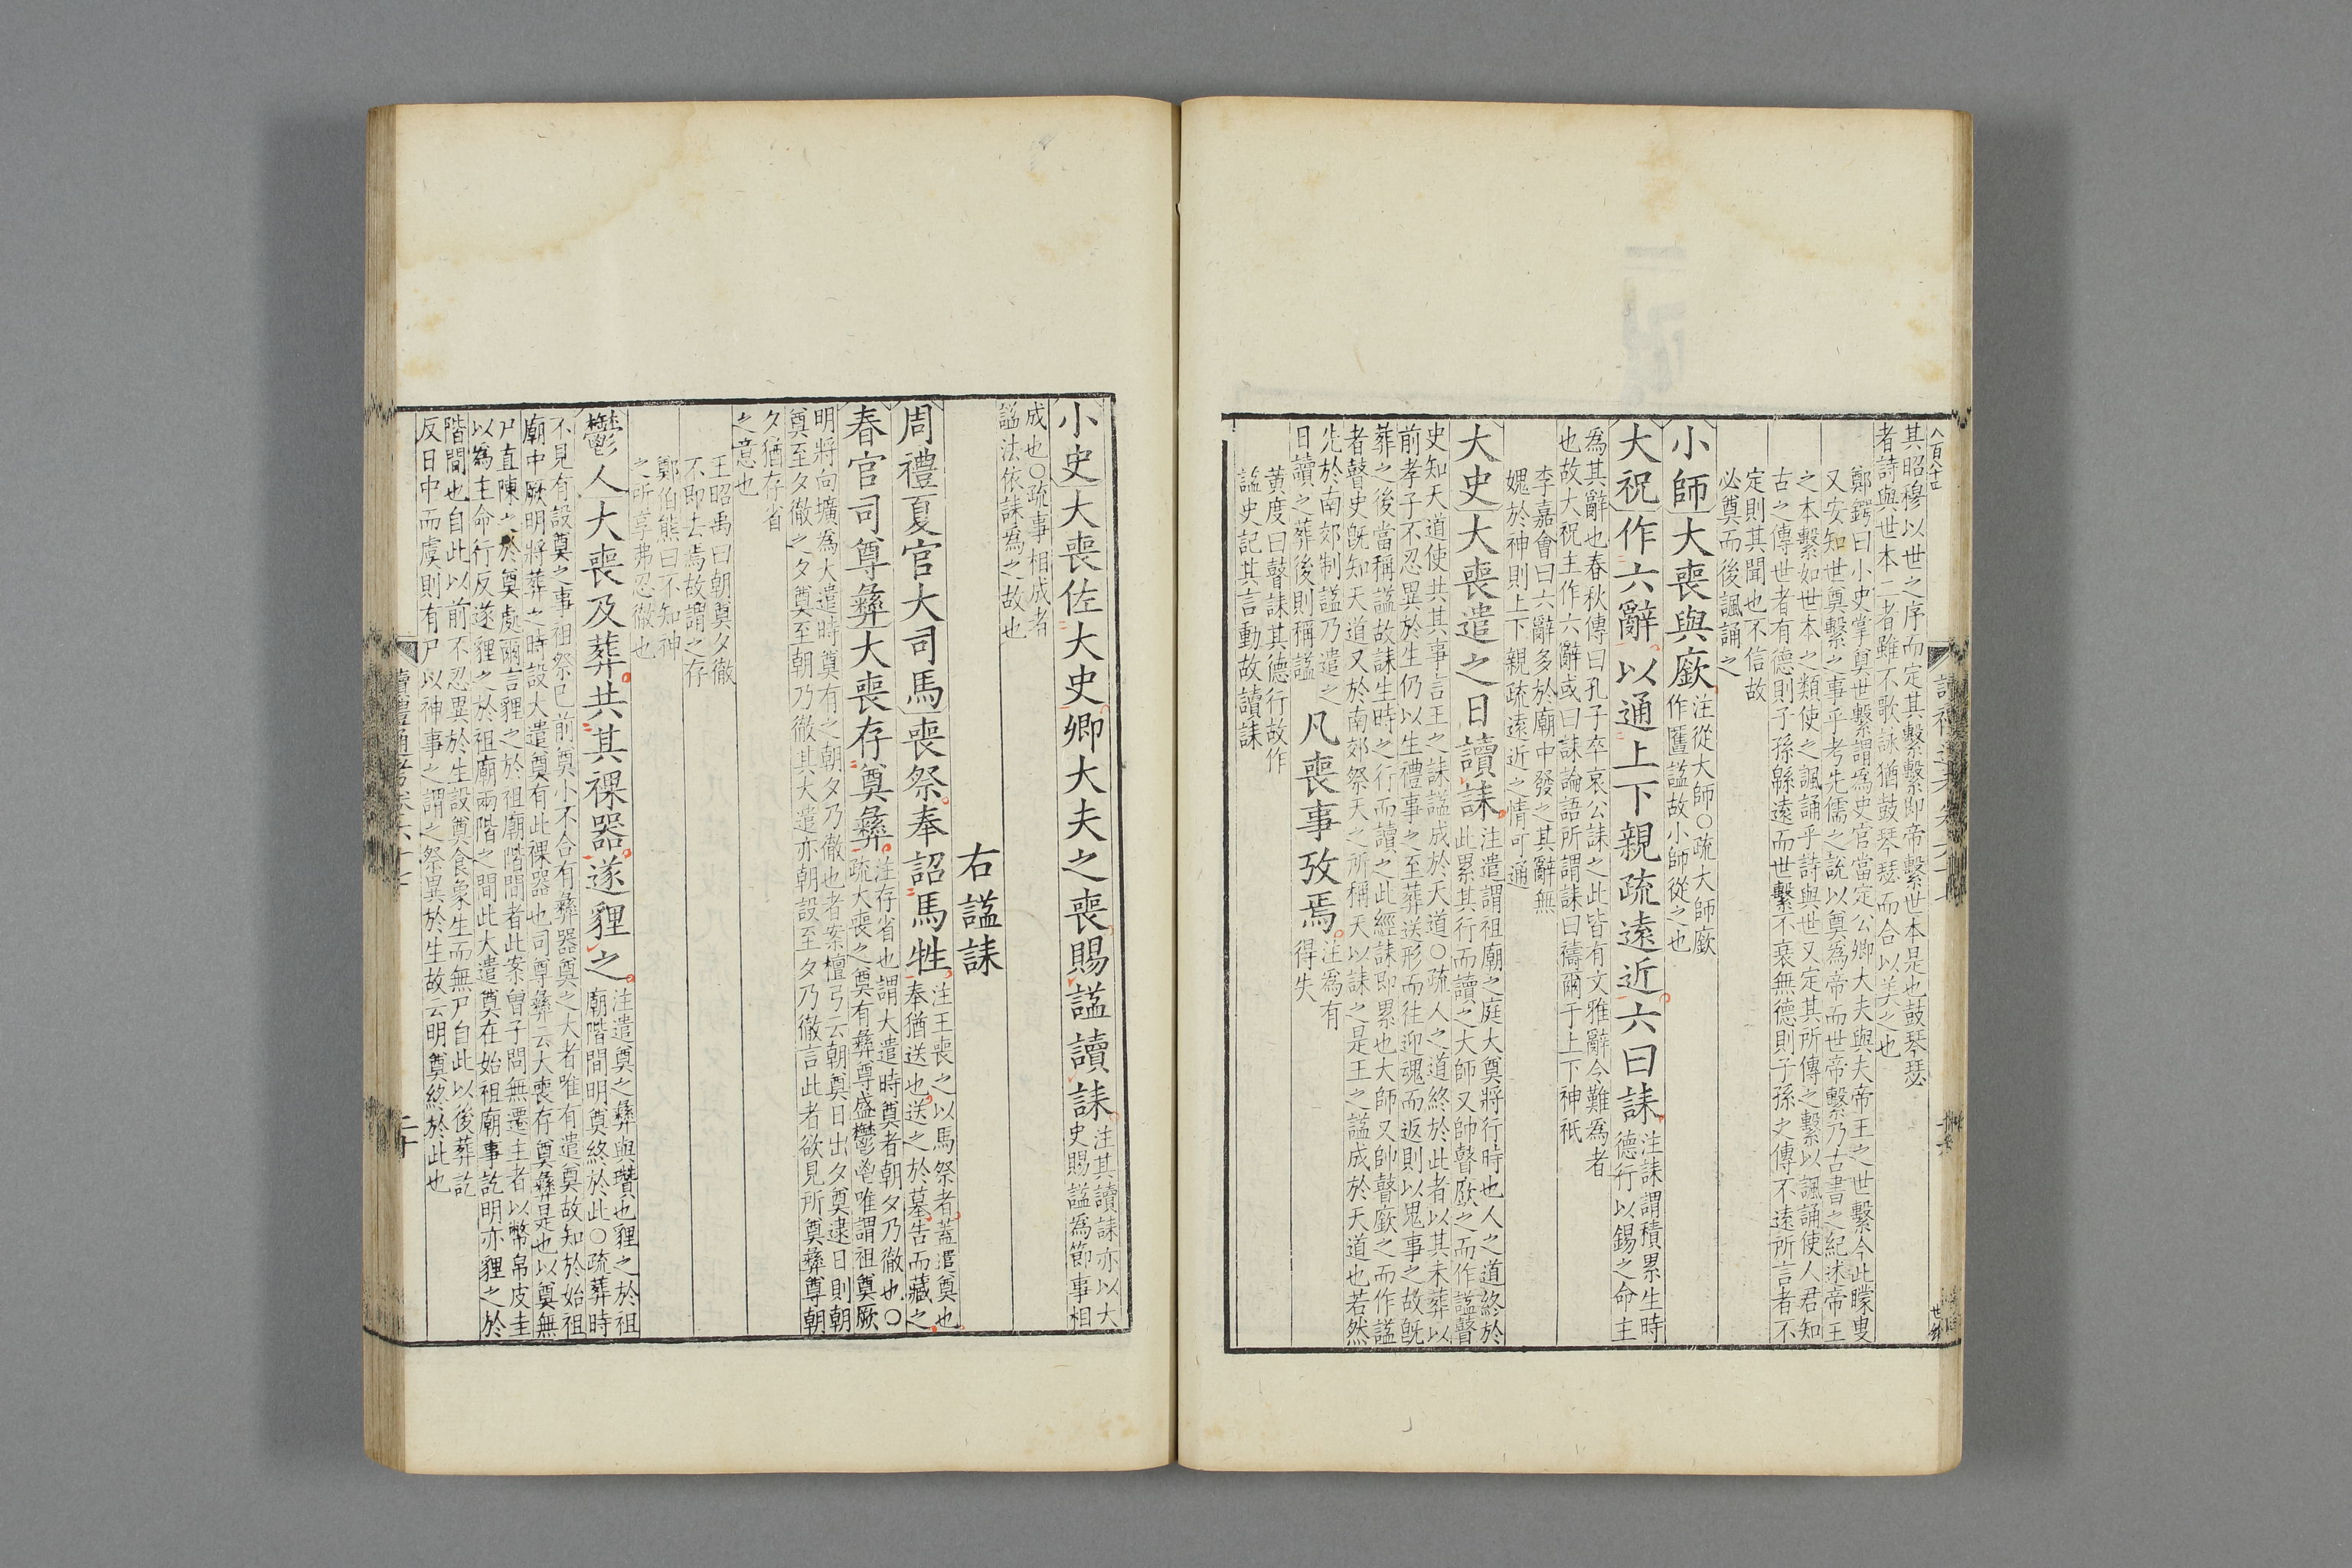 八百八十四
其昭穆以世之序而定其繫繫即帝繫世本是也鼓琴瑟
者詩與世本二者雖不歌詠猶鼓琴瑟而合以美之也
鄭鍔曰小史掌奠世繫謂爲史官當定公卿大夫與夫帝王之世繫今此矇叟
又安知世奠繫之事乎考先儒之說以奠爲帝而世帝繫乃古書之紀述帝王
之本繫如世本之類使之諷誦乎詩與世又定其所傳之繫以諷誦使人君知
古之傳世者有德則子孫緜遠而世繫不衰無德則子孫之傳不遠所言者不
定則其聞也不信故
必奠而後諷誦之
小師大喪與廞
注從大師○疏大師廞
作匶諡故小師從之也
大祝作六辭以通上下親疏遠近六曰誄
注誄謂積累生時
德行以錫之命主
爲其辭也春秋傳曰孔子卒哀公誄之此皆有文雅辭令難爲者
也故大祝主作六辭或曰誄論語所謂誄曰禱爾于上下神祇
李嘉會曰六辭多於廟中發之其辭無
媿於神則上下親疏遠近之情可通
大史大喪遣之日讀誄
注遣謂祖廟之庭大奠將行時也人之道終於
此累其行而讀之大師又帥瞽廞之而作諡瞽
史知天道使共其事言王之誄諡成於天道○疏人之道終於此者以其未葬以
前孝子不忍異於生仍以生禮事之至葬送形而往迎魂而返則以鬼事之故旣
葬之後當稱諡故誄生時之行而讀之此經誄即累也大師又帥瞽廞之而作諡
者瞽史旣知天道又於南郊祭天之所稱天以誄之是王之諡成於天道也若然
先於南郊制諡乃遣之
日讀之葬後則稱諡
凡喪事攷焉
注爲有
得失
黃度曰瞽誄其德行故作
諡史記其言動故讀誄
小史大喪佐大史卿大夫之喪賜諡讀誄
注其讀誄亦以大
史賜諡爲節事相
成也○疏事相成者
諡法依誄爲之故也
右諡誄
周禮夏官大司馬喪祭奉詔馬牲
注王喪之以馬祭者蓋遣奠也
奉猶送也送之於墓告而藏之
春官司尊彝大喪存奠彝
注存省也謂大遣時奠者朝夕乃徹也○
疏大喪之奠有彝尊盛鬱鬯唯謂祖奠厥
明將向壙爲大遣時奠有之朝夕乃徹也者案檀弓云朝奠日出夕奠逮日則朝
奠至夕徹之夕奠至朝乃徹其大遣亦朝設至夕乃徹言此者欲見所奠彝尊朝
夕猶存省
之意也
王昭禹曰朝奠夕徹
不即去焉故謂之存
鄭伯熊曰不知神
之所享弗忍徹也
鬱人大喪及葬共其祼器遂貍之
注遣奠之彝與瓚也貍之於祖
廟階間明奠終於此○疏葬時
不見有設奠之事祖祭已前奠小不合有彝器奠之大者唯有遣奠故知於始祖
廟中厥明將葬之時設大遣奠有此祼器也司尊彝云大喪存奠彝是也以奠無
尸直陳之於奠處爾言貍之於祖廟階間者此案曾子問無遷主者以幣帛皮圭
以爲主命行反遂貍之於祖廟兩階之間此大遣奠在始祖廟事訖明亦貍之於
階間也自此以前不忍異於生設奠食象生而無尸自此以後葬訖
反日中而虞則有尸以神事之謂之祭異於生故云明奠終於此也
讀禮通考卷六十七
二十